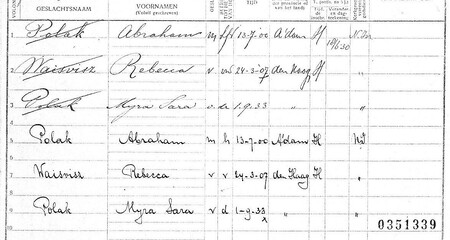 GESLACHTSNAAM VOORNAMEN
(Voluit geschreven)
1 Polak Abraham m 13-7-00 A'dam H N.I.
2 Waisvisz Rebecca v 24-3-07 den Haag H "
3 Polak Myra Sara v. d. 1-9-33 "
Polak Abraham m h 13-7-00 A'dam H
7 Waisvisz Rebecca v v 24-3-07 den Haag H "
9 Polak Myra Sara v d 1-9-33 " "
10
0351339